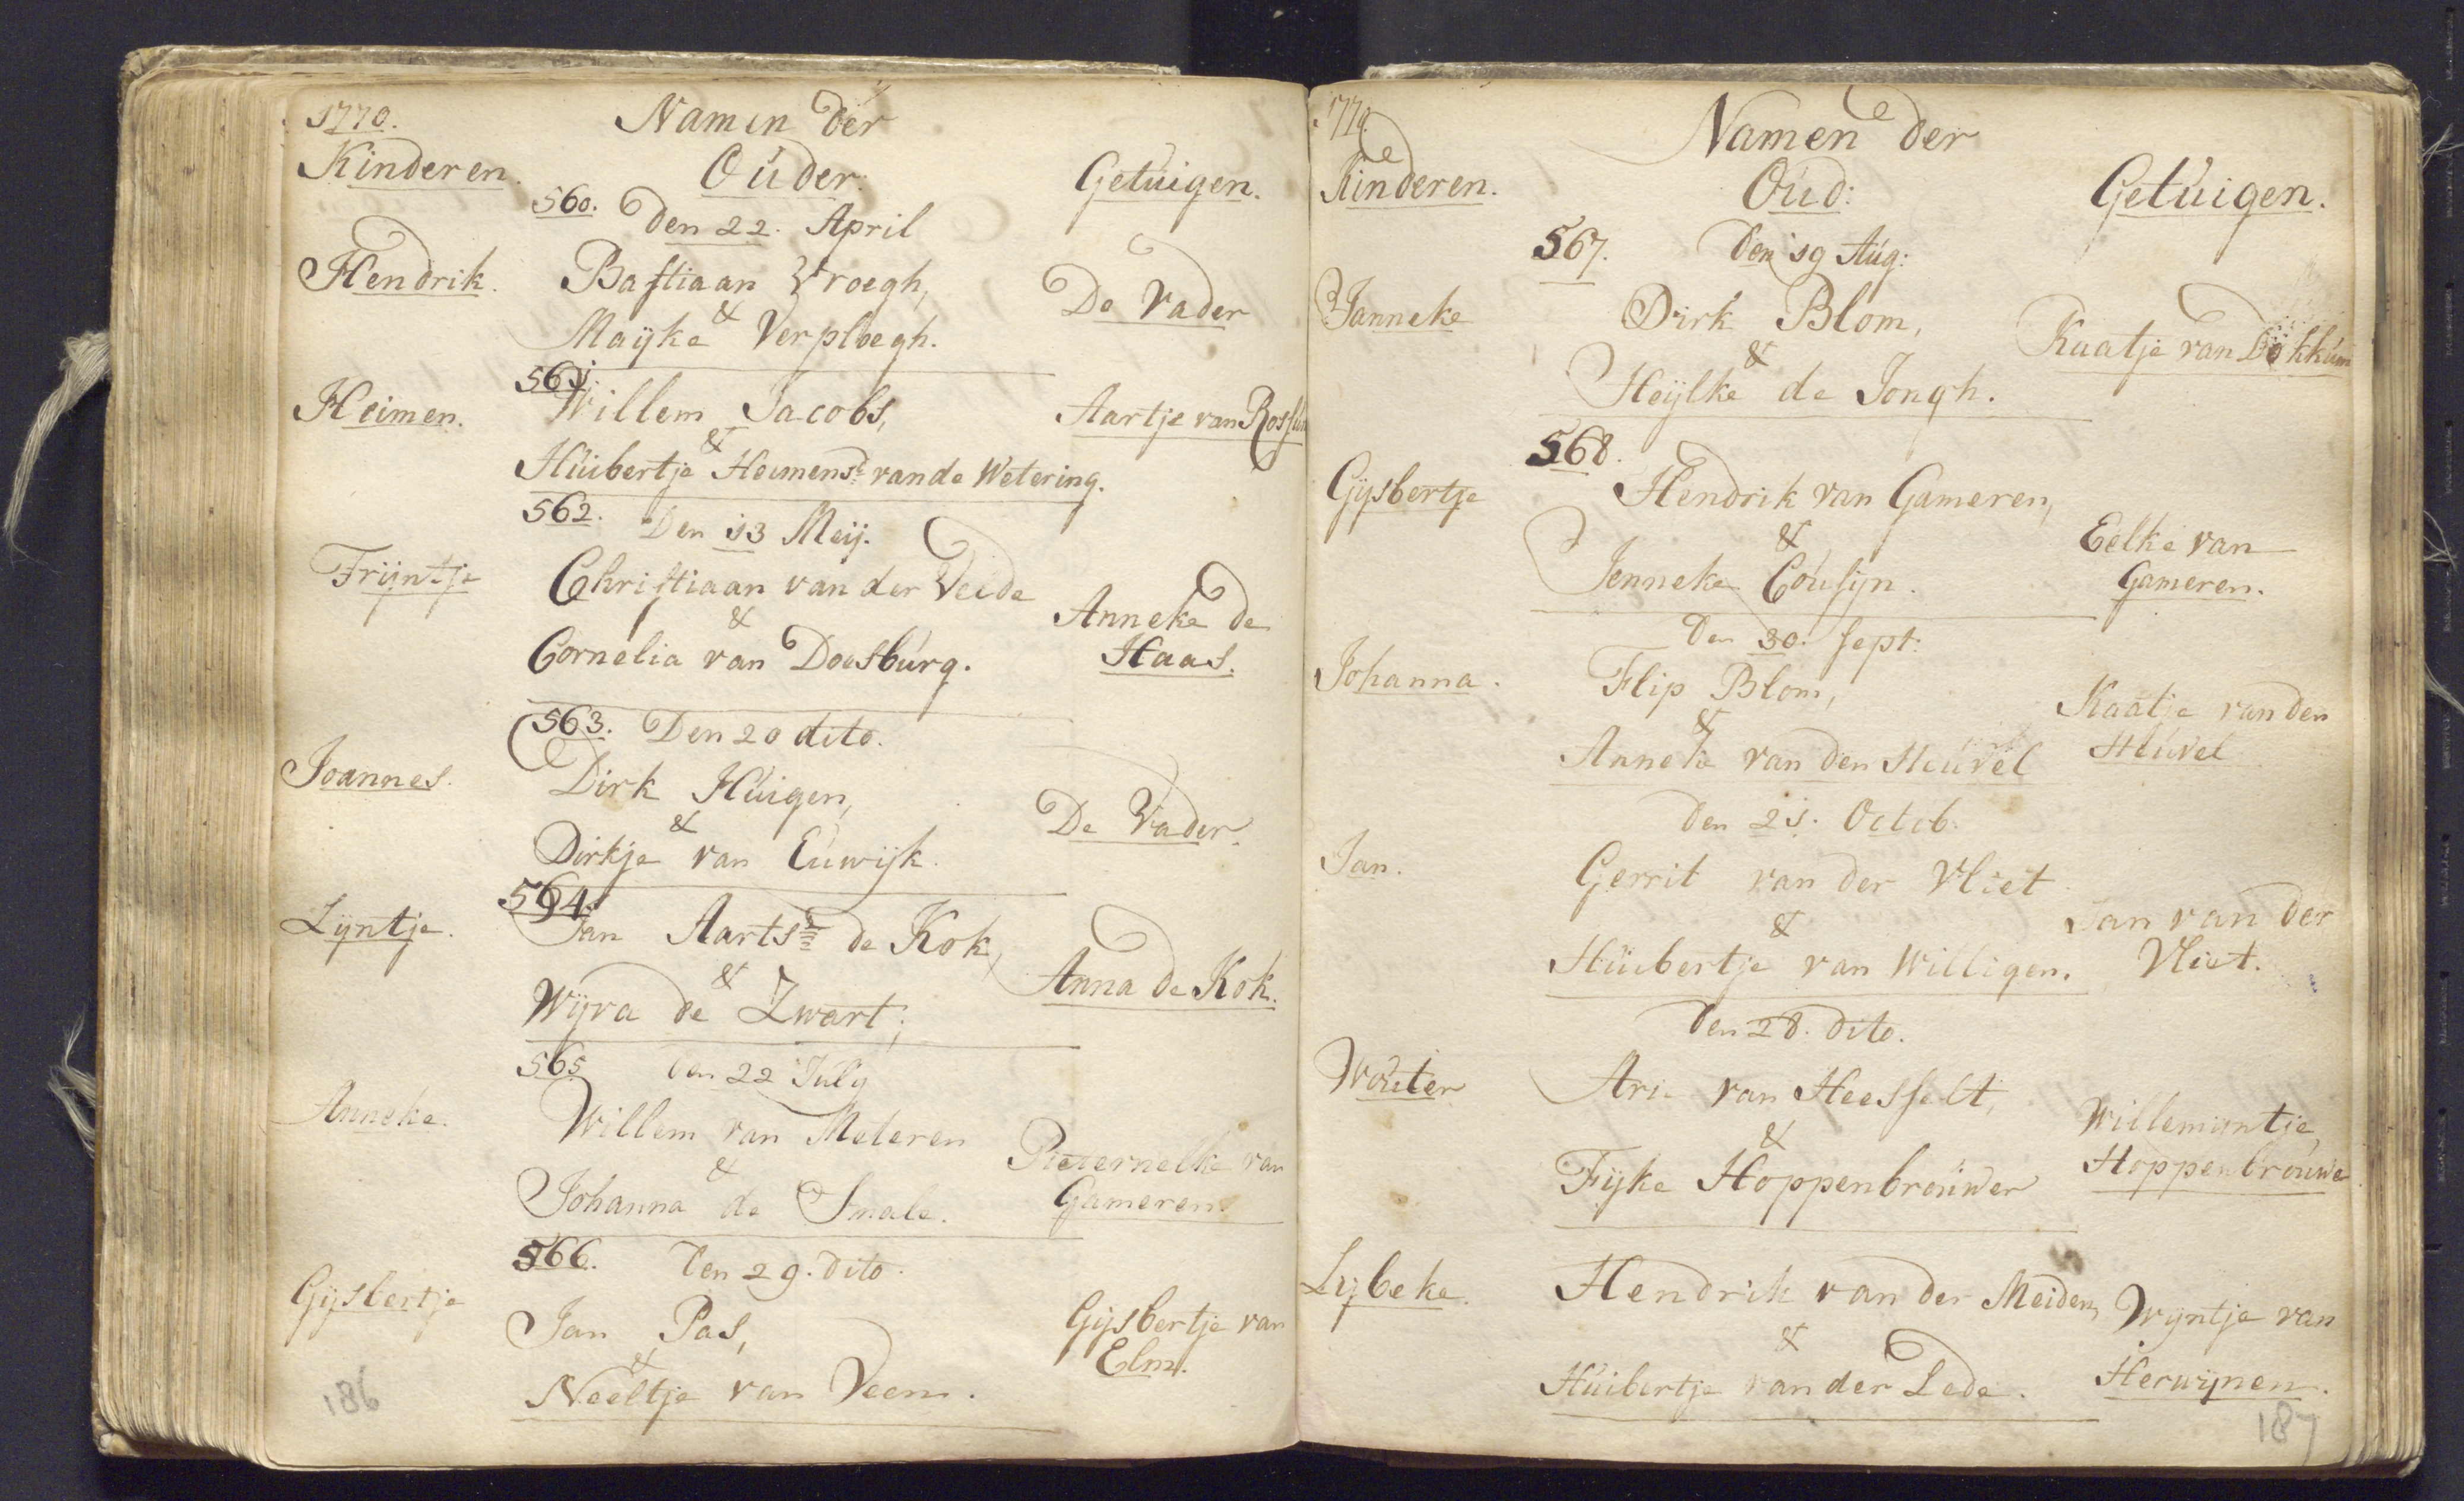 1770.
Namen der
Kinderen.
Ouder:
Getuigen.
560.
Den 22. April
Hendrik.
Bastiaan Vroegh,
De Vader
&
Maijke Verploegh.
561.
Heimen.
Willem Jacobs,
Aartje van Rossum
&
Huibertje Heimensd: van de Wetering.
562.
Den 13 Meij.
Trijntje
Christiaan van der Veide
&
Anneke de
Cornelia van Doesburg.
Haas.
563. Den 20 dito.
Joannes.
Dirk Huigen,
&
De Vader.
Dirkje van Euwijk.
564.
Lijntje.
Jan Aartsz: de Kok,
&
Anna de Kok.
Wijva de Zwart;
565
Den 22 July
Anneke.
Willem van Meteren
&
Pieternelke van
Johanna de Smale.
Gameren.
566.
Den 29. dito.
Gijsbertje
Jan Pas,
Gijsbertje van
&
Elm.
Neeltje van Veen.
186
1770.
Namen der
Kinderen.
Oud:
Getuigen.
567.
Den 19 Aug:
Janneke
Dirk Blom,
Kaatje van Dokkum
&
Heijlke de Jongh.
568.
Gijsbertje
Hendrik van Gameren,
&
Eelke van
Jenneke Cousijn.
Gameren.
Den 30. Sept:
Johanna.
Flip Blom,
Kaatje van den
&
Heuvel
Anneke van den Heuvel
Den 21. Octob.
Jan.
Gerrit van der Vliet
&
Jan van der
Huibertje van Willigen.
Vliet.
Den 28. dito.
Wouter
Arie van Heesselt,
&
Willemijntje
Fijke Hoppenbrouwer
Hoppenbrouwer
Lijbeke.
Hendrik van der Meiden,
Wijntje van
&
Huibertje van der Lede.
Herwijnen.
187